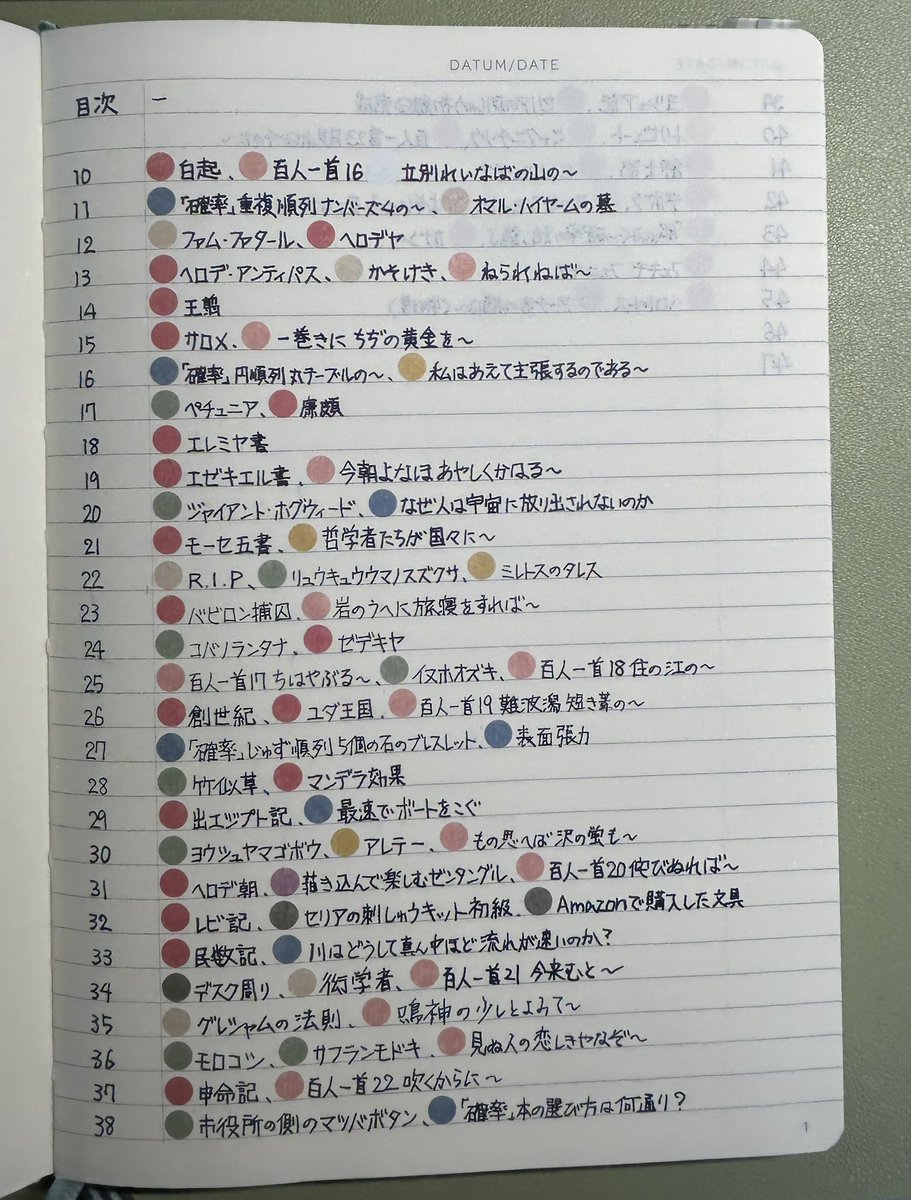 DATUM/DATE
目次 ー
10 白起、百人一首16 立別れいなばの山の〜
11 「確率」重複順列 ナンバーズ4の〜、オマル・ハイヤームの墓
12 ファム・ファタール、ヘロデヤ
13 ヘロデ・アンティパス、かそけき、ねられねば〜
14 王翦
15 サロメ、一巻きに ちぢの黄金を〜
16 「確率」円順列 丸テーブルの〜、私はあえて主張するのである〜
17 ペチュニア、廉頗
18 エレミヤ書
19 エゼキエル書、今朝よなほあやしくかはる〜
20 ジャイアント・ホグウィード、なぜ人は宇宙に放り出されないのか
21 モーセ五書、哲学者たちが国々に〜
22 R.I.P、リュウキュウウマノスズクサ、ミレトスのタレス
23 バビロン捕囚、岩のうへに旅寝をすれば〜
24 コバノランタナ、ゼデキヤ
25 百人一首17 ちはやぶる〜、イヌホオズキ、百人一首18 住の江の〜
26 創世紀、ユダ王国、百人一首19 難波潟 短き葦の〜
27 「確率」じゅず順列 5個の石のブレスレット、表面張力
28 竹似草、マンデラ効果
29 出エジプト記、最速でボートをこぐ
30 ヨウシュヤマゴボウ、アレテー、もの思へば沢の蛍も〜
31 ヘロデ朝、描き込んで楽しむゼンタングル、百人一首20 侘びぬれば〜
32 レビ記、セリアの刺しゅうキット初級、Amazonで購入した文具
33 民数記、川はどうして真ん中ほど流れが速いのか?
34 デスク周り、衒学者、百人一首21 今来むと〜
35 グレシャムの法則、鳴神の少しとよみて〜
36 モロコシ、サフランモドキ、見ぬ人の恋しきやなぞ〜
37 申命記、百人一首22 吹くからに〜
38 市役所の側のマツバボタン、「確率」本の選び方は何通り?
1